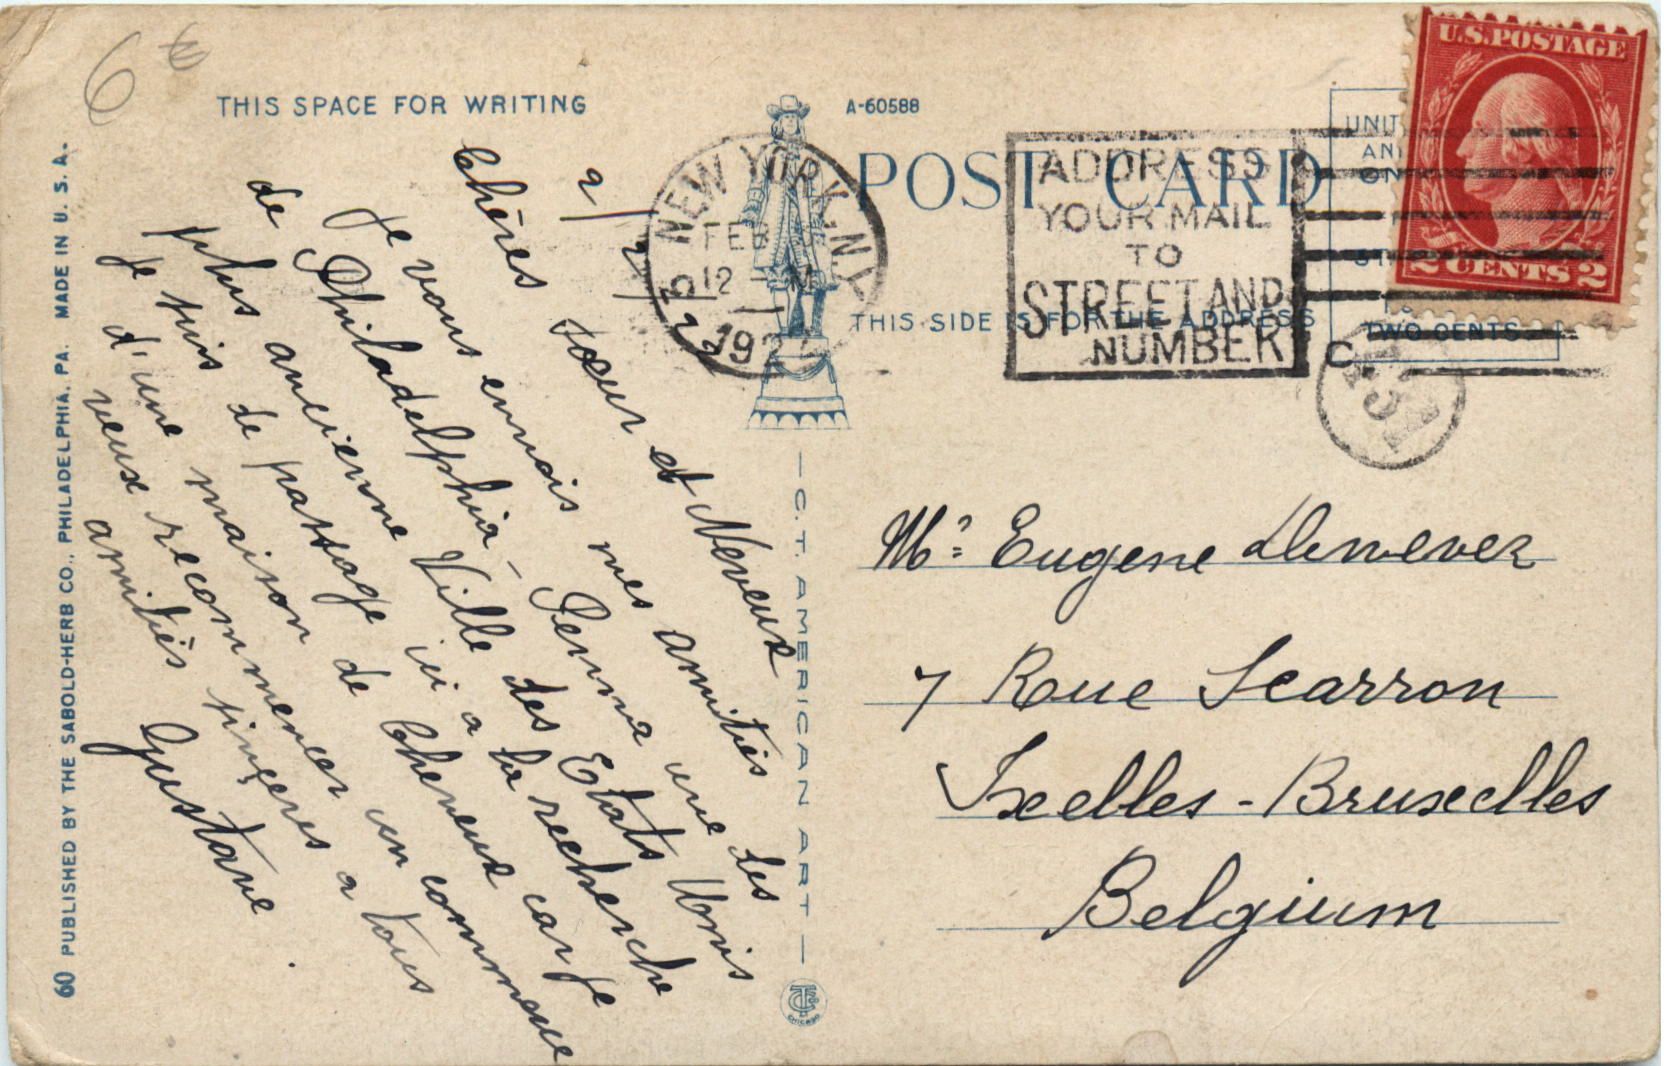 6 €
THIS SPACE FOR WRITING
A-60588
POST CARD
THIS SIDE IS FOR THE ADDRESS
U.S. POSTAGE
2 CENTS 2
TWO CENTS
NEW YORK, N.Y.
FEB
12 M
ADDRESS
YOUR MAIL
TO
STREET AND
NUMBER
2/2/22
Chères soeur et Neveux
Je vous envois mes amitiés
de Philadelphia - Penna une des
plus ancienne Ville des Etats Unis
je suis de passage ici a la recherche
d'une maison de Cheveux car je
veux recommencer un commerce
amitiès sinçeres a tous
Gustave.
Mr. Eugene Denever
7 Rue Scarron
Ixelles - Bruxelles
Belgium
— C. T. AMERICAN ART —
CHICAGO
60 PUBLISHED BY THE SABOLD-HERB CO., PHILADELPHIA, PA. MADE IN U. S. A.